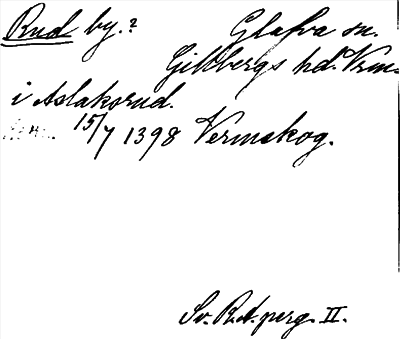 Rud by.? Glafva sn.
Gillbergs hd. Vrm.
i Aslakorud.
15/7 1398 Vermskog.
Sv. R.A. perg. II.